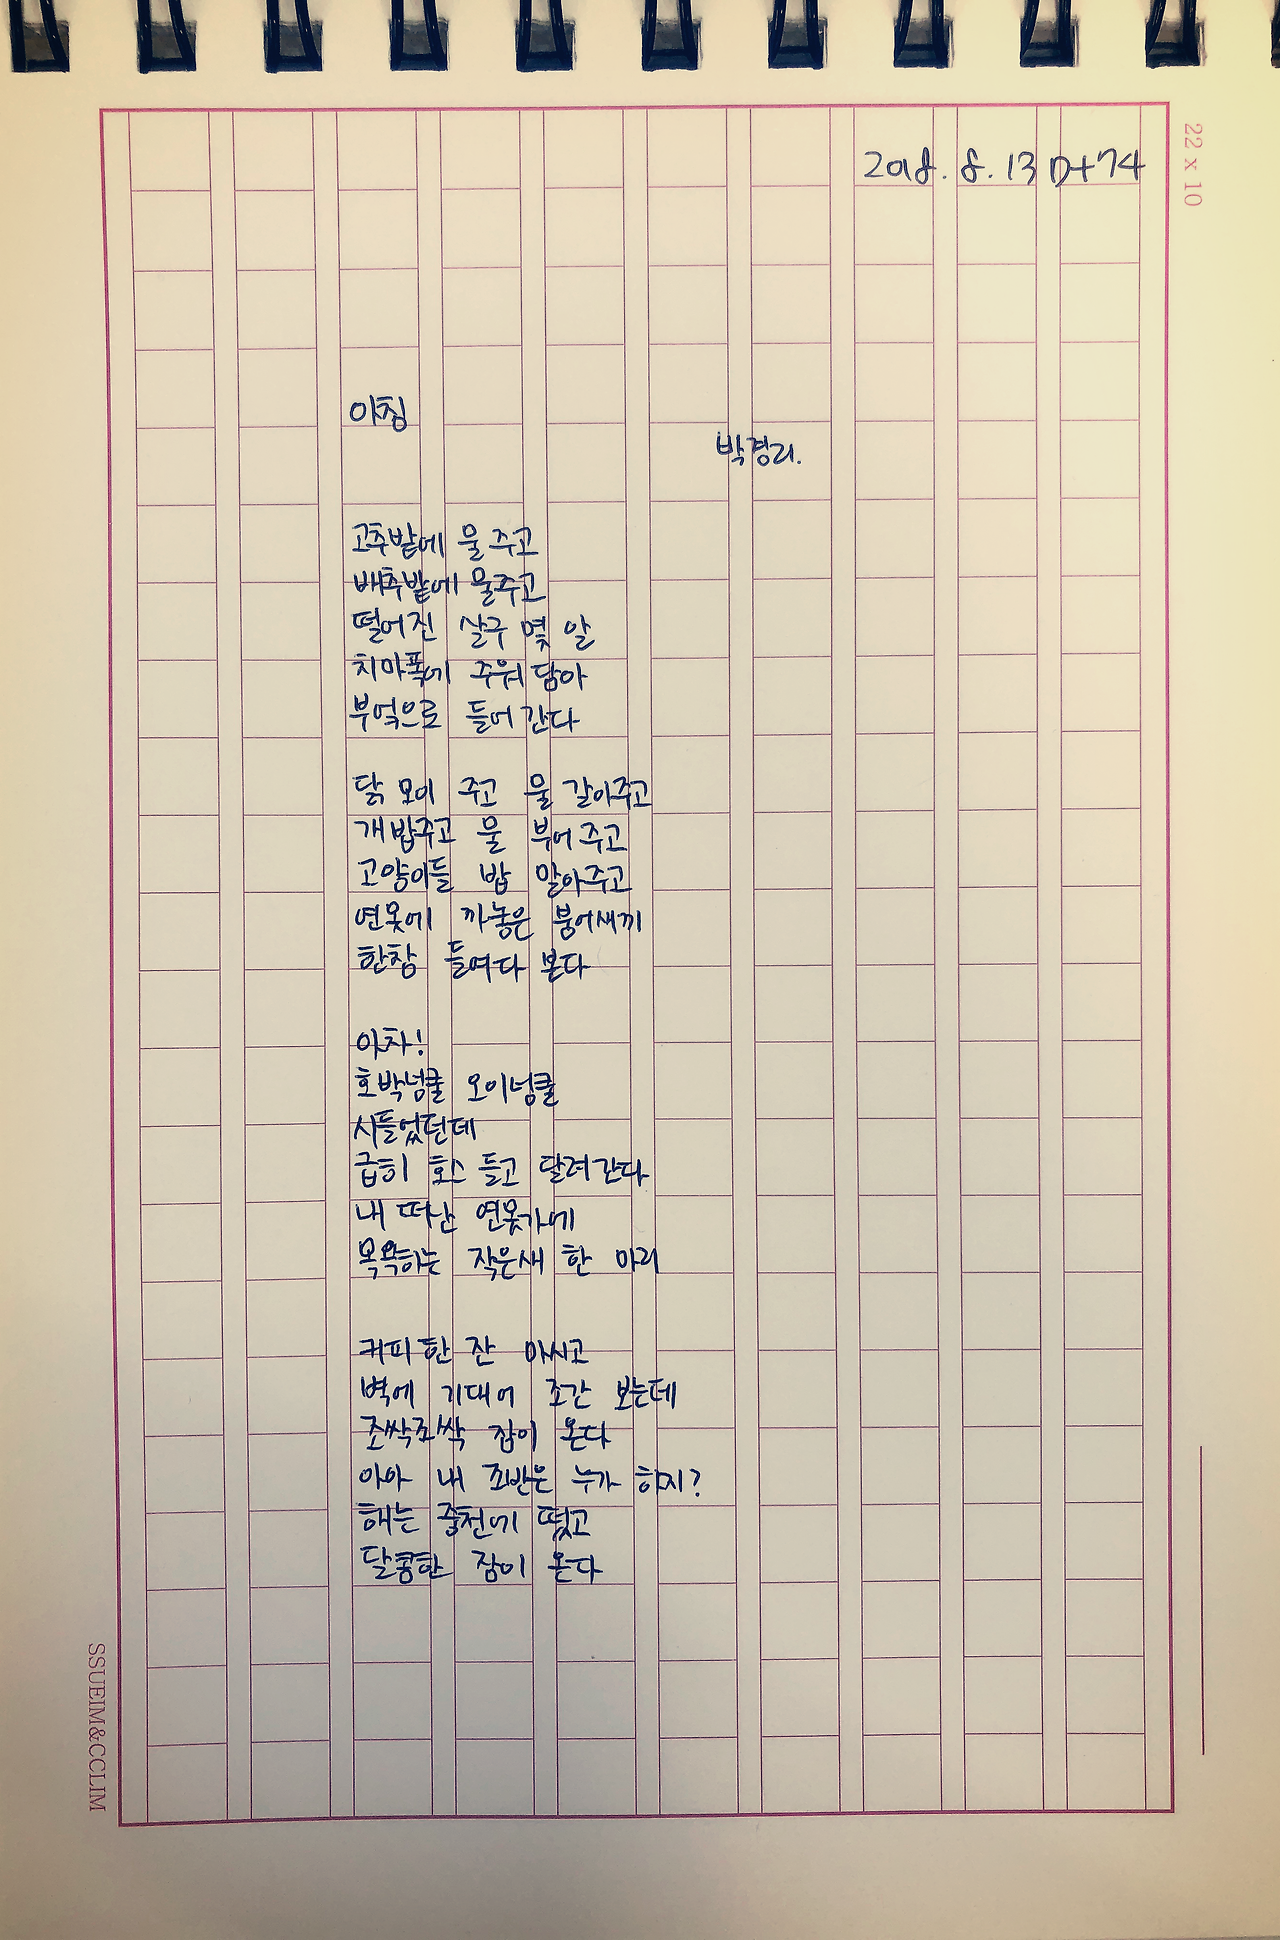 2018. 8. 13 D+74
22 x 10
아침
박경리.
고추밭에 물 주고
배추밭에 물주고
떨어진 살구 몇 알
치마폭에 주워 담아
부엌으로 들어간다
닭 모이 주고 물 갈아주고
개밥주고 물 부어 주고
고양이들 밥 말아주고
연못에 까놓은 붕어새끼
한참 들여다 본다
아차!
호박넝쿨 오이넝쿨
시들었던데
급히 호스 들고 달려간다
내 떠난 연못가에
목욕하는 작은새 한 마리
커피 한 잔 마시고
벽에 기대어 조간 보는데
조싹조싹 잠이 온다
아아 내 조반은 누가 하지?
해는 중천에 떴고
달콤한 잠이 온다
SSUEIM&CCLIM